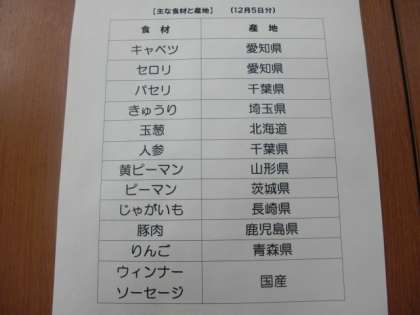 【主な食材と産地】 (12月5日分)
食 材 産 地
キャベツ 愛知県
セロリ 愛知県
パセリ 千葉県
きゅうり 埼玉県
玉葱 北海道
人参 千葉県
黄ピーマン 山形県
ピーマン 茨城県
じゃがいも 長崎県
豚肉 鹿児島県
りんご 青森県
ウィンナー
ソーセージ 国産